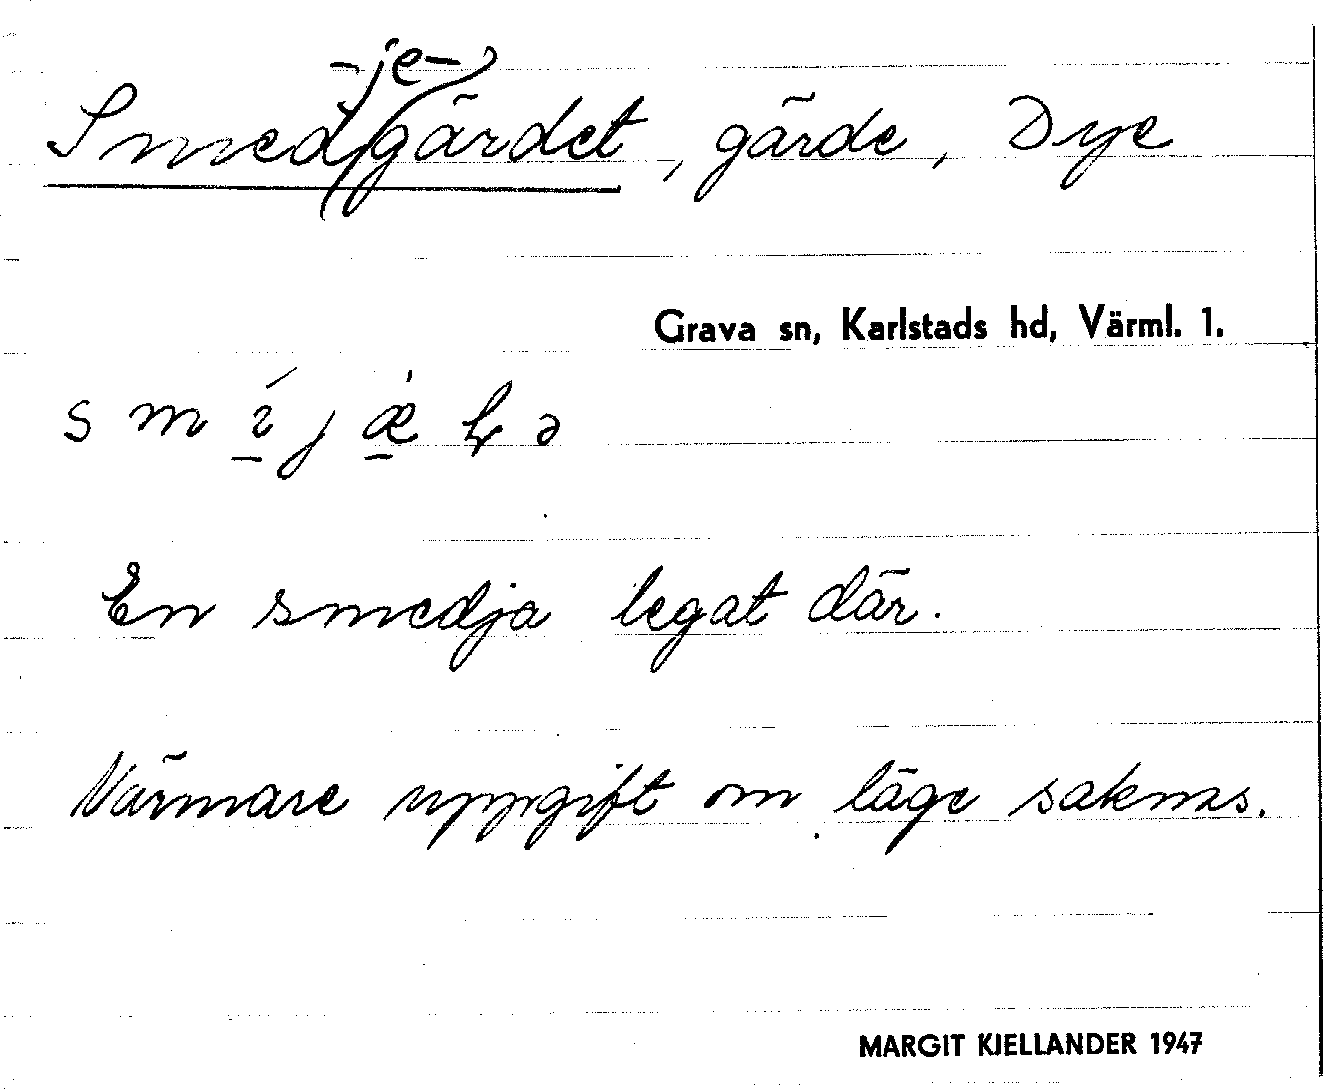 -je-
Smedgärdet, gärde, Dye
Grava sn, Karlstads hd, Värml. 1.
En smedja legat där.
Närmare uppgift om läge saknas.
MARGIT KJELLANDER 1947